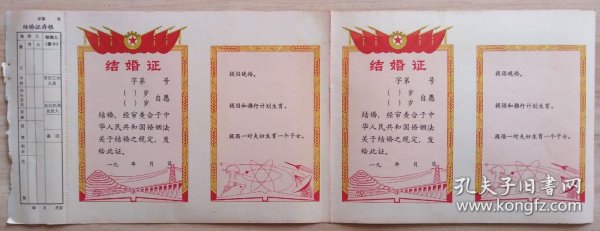 字第 号
结婚证存根
结婚证
字第 号
( ) 岁
( ) 岁 自愿
结婚，经审查合于中
华人民共和国婚姻法
关于结婚之规定，发
给此证。
一九 年 月 日
提倡晚婚。
提倡和推行计划生育。
提倡一对夫妇生育一个子女。
结婚证
字第 号
( ) 岁
( ) 岁 自愿
结婚，经审查合于中
华人民共和国婚姻法
关于结婚之规定，发
给此证。
一九 年 月 日
提倡晚婚。
提倡和推行计划生育。
提倡一对夫妇生育一个子女。
孔夫子旧书网
www.kongfz.com